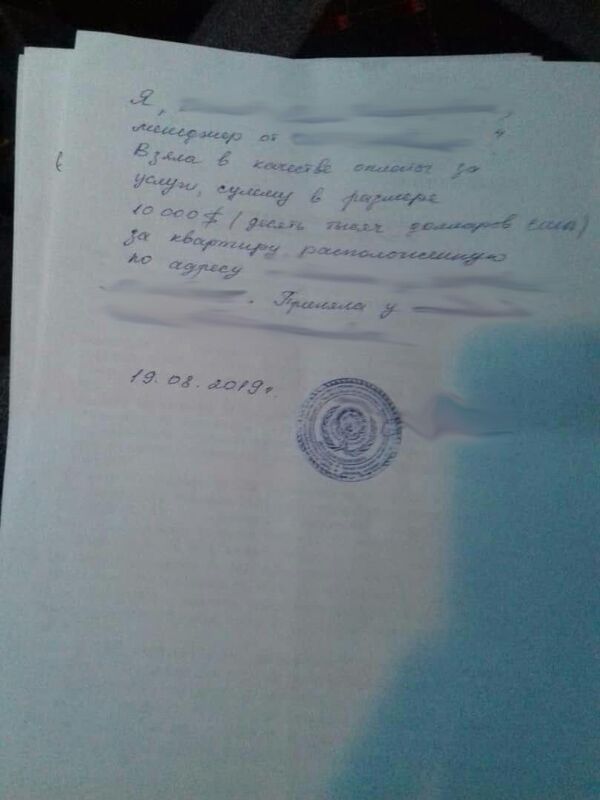 Я,
менеджер от
Взяла в качестве оплаты за
услуги, сумму в размере
10 000 $ (десять тысяч долларов сша)
за квартиру расположенную
по адресу
. Приняла у
19.08.2019г.